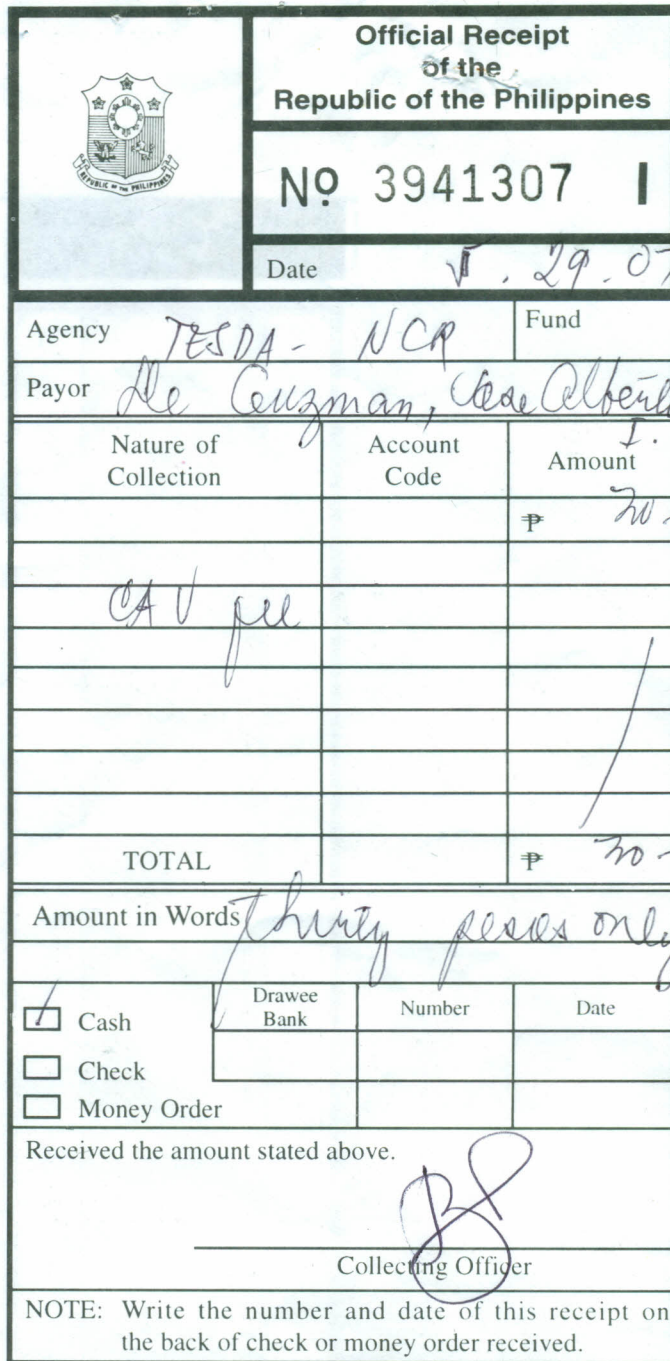 REPUBLIC OF THE PHILIPPINES
Official Receipt
of the
Republic of the Philippines
Nº 3941307 I
Date 5.29.07
Agency TESDA - NCR Fund
Payor De Guzman, Jose Alberto I.
Nature of Collection Account Code Amount
₱ 30-
CAV fee
TOTAL ₱ 30-
Amount in Words thirty pesos only
Cash Drawee Bank Number Date
Check
Money Order
Received the amount stated above.
Collecting Officer
NOTE: Write the number and date of this receipt on
the back of check or money order received.